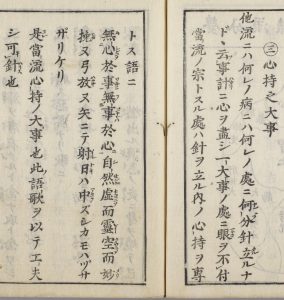 ㊂心持之大事
他流ニハ何レノ病ニハ何レノ處ニ何分針立ルナ
ド、云事計ニ心ヲ盡シ一大事ノ處ニ眼ヲ不付
當流ノ宗トスル處ハ針ヲ立ル内ノ心持ヲ專
トス語ニ
無心於事無事於心自然虚而靈空而妙
挽ヌ弓放ヌ矢ニテ射日ハ中ズシカモハヅサ
ザリケリ
是當流心持ノ大事也此語歌ヲ以テ工夫
シ可針也